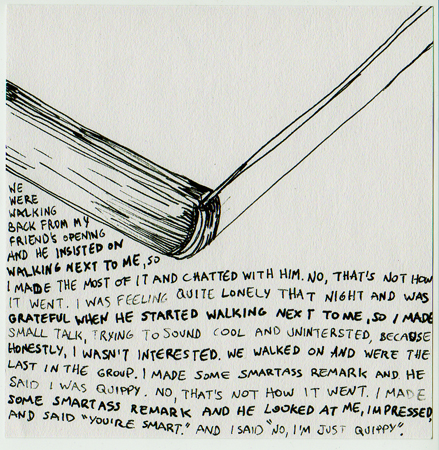 WE
WERE
WALKING
BACK FROM MY
FRIEND'S OPENING
AND HE INSISTED ON
WALKING NEXT TO ME, SO
I MADE THE MOST OF IT AND CHATTED WITH HIM. NO, THAT'S NOT HOW
IT WENT. I WAS FEELING QUITE LONELY THAT NIGHT AND WAS
GRATEFUL WHEN HE STARTED WALKING NEXT TO ME, SO I MADE
SMALL TALK, TRYING TO SOUND COOL AND UNINTERSTED, BECAUSE
HONESTLY, I WASN'T INTERESTED. WE WALKED ON AND WERE THE
LAST IN THE GROUP. I MADE SOME SMARTASS REMARK AND HE
SAID I WAS QUIPPY. NO, THAT'S NOT HOW IT WENT. I MADE
SOME SMARTASS REMARK AND HE LOOKED AT ME, IMPRESSED,
AND SAID "YOU'RE SMART." AND I SAID "NO, I'M JUST QUIPPY".